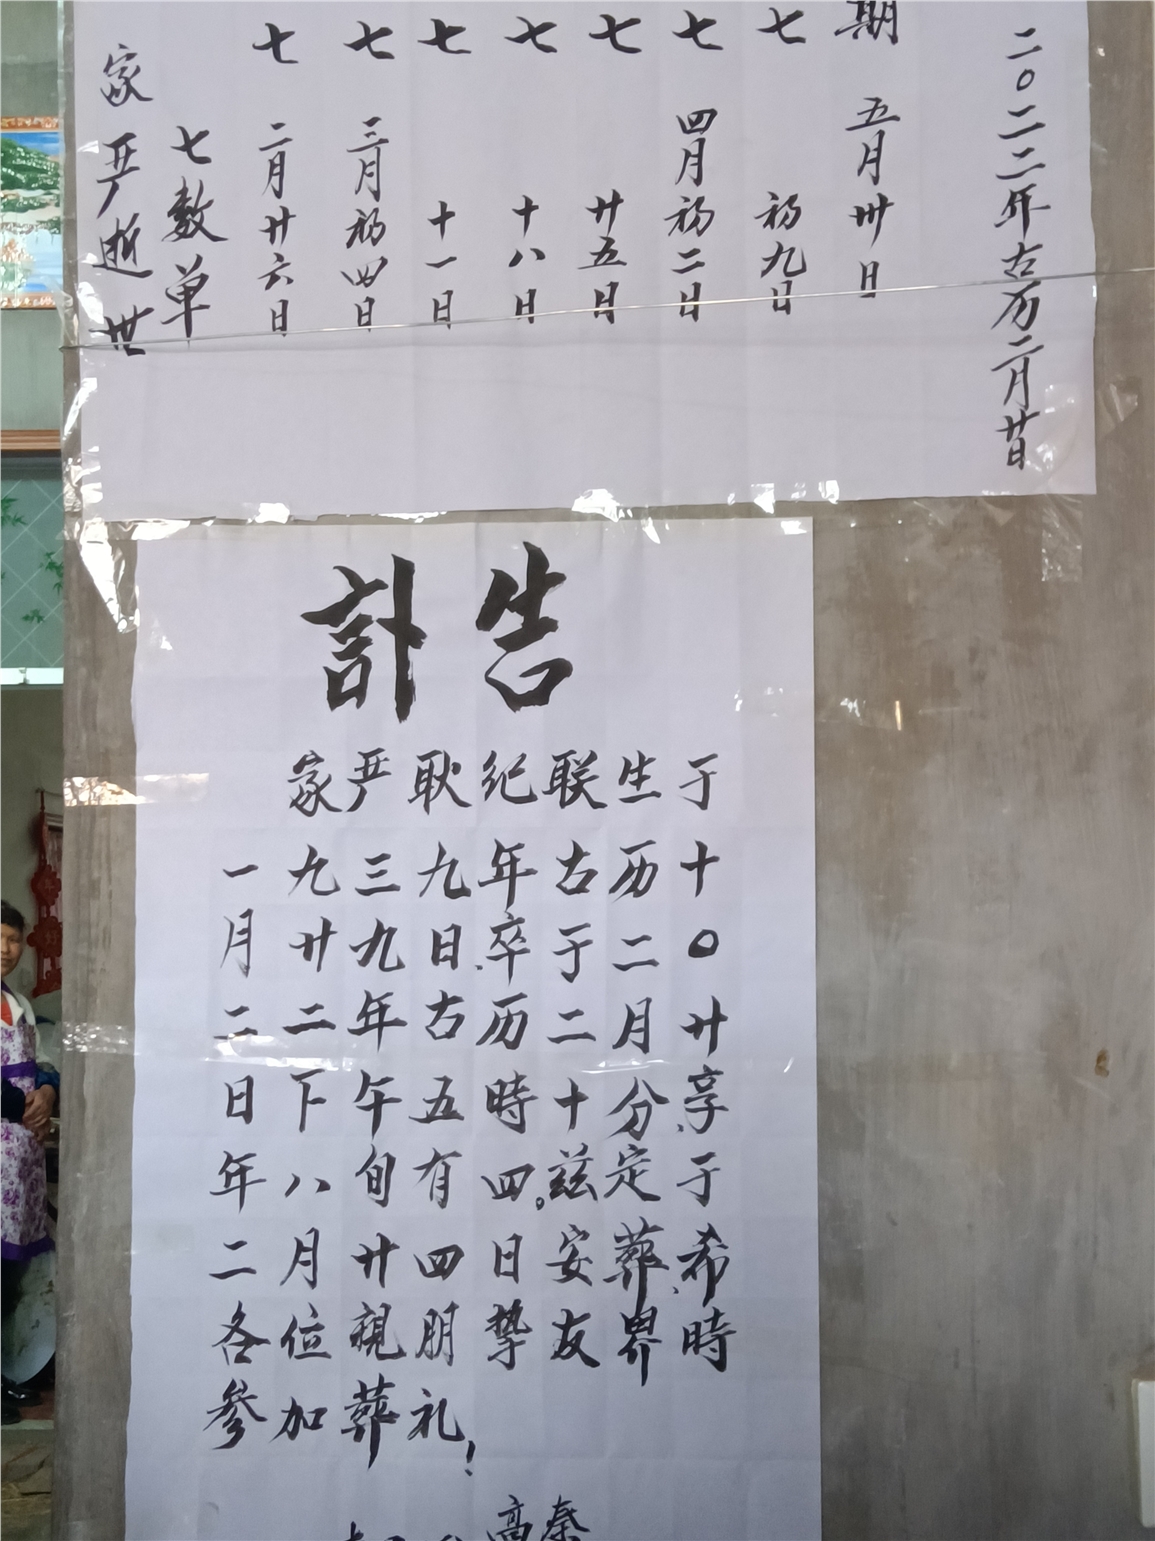 家严逝世
七数单
七 二月廿六日
七 三月初四日
七 十一日
七 十八日
七 廿五日
七 四月初二日
七 初九日
期 五月卅日
二〇二二年古历二月廿日
訃告
家严耿纪联生于
一九三九年古历十
月廿九日,卒于二〇
二二年古历二月廿
日下午五時十分,享
年八旬有四。兹定于
二月廿四日安葬,希
各位親朋挚友畀時
参加葬礼!
高秦